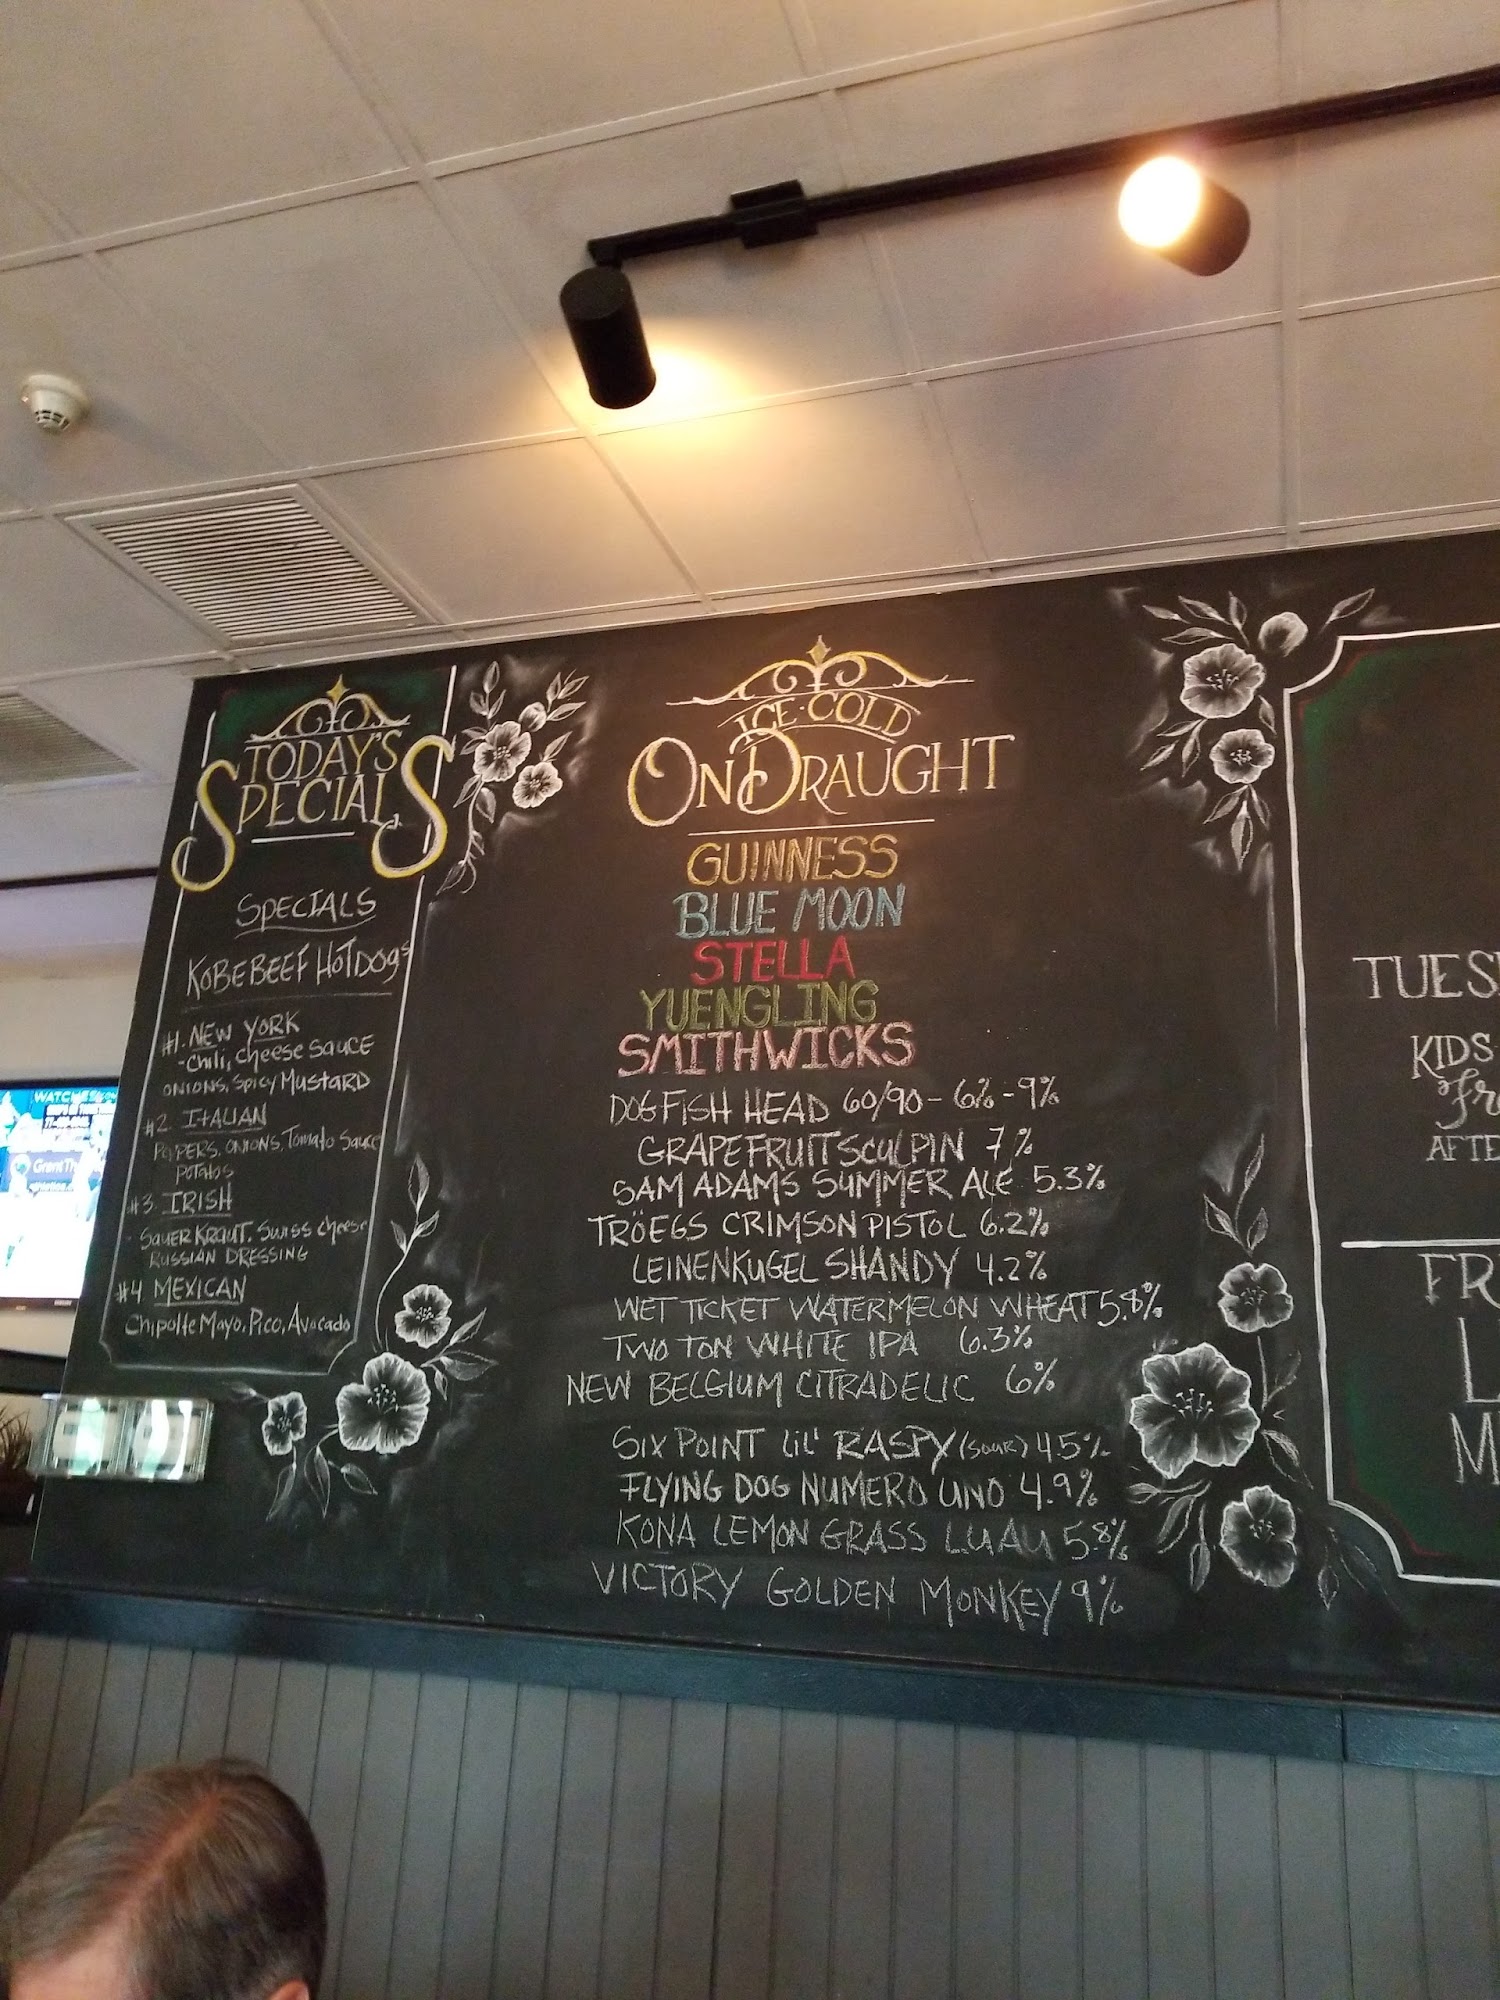 TODAY'S
SPECIALS
SPECIALS
KOBE BEEF HOTDOGS
#1. NEW YORK
-Chili, cheese sauce
ONIONS, SPICY MUSTARD
#2. ITALIAN
PEPPERS, ONIONS, Tomato Sauce
POTATOS
#3. IRISH
- SAUER KRAUT, SWISS cheese
RUSSIAN DRESSING
#4 MEXICAN
Chipolte Mayo, Pico, Avocado
ICE·COLD
ON DRAUGHT
GUINNESS
BLUE MOON
STELLA
YUENGLING
SMITHWICKS
DOGFISH HEAD 60/90 - 6% - 9%
GRAPEFRUIT SCULPIN 7%
SAM ADAMS SUMMER ALE 5.3%
TRÖEGS CRIMSON PISTOL 6.2%
LEINENKUGEL SHANDY 4.2%
WET TICKET WATERMELON WHEAT 5.8%
TWO TON WHITE IPA 6.3%
NEW BELGIUM CITRADELIC 6%
SIX POINT LIL' RASPY (SOUR) 4.5%
FLYING DOG NUMERO UNO 4.9%
KONA LEMON GRASS LUAU 5.8%
VICTORY GOLDEN MONKEY 9%
TUES
KIDS
AFTE
FR
L
M